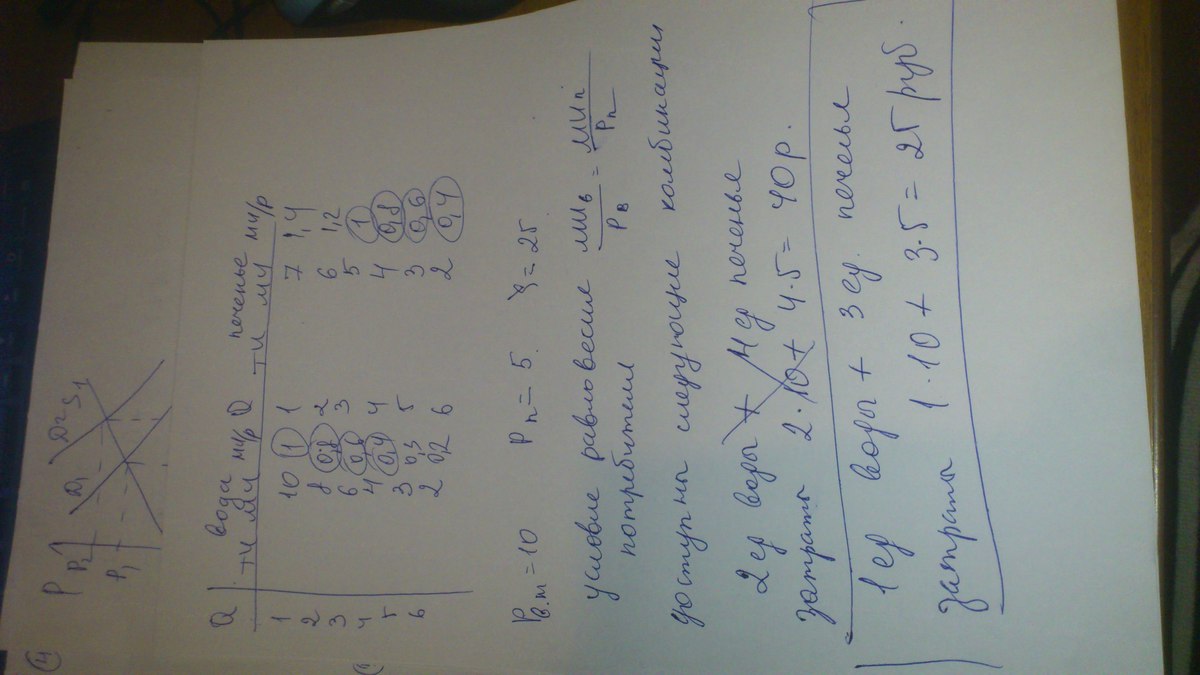 4
P
P2
P1
D1 D2 S1
Q | вода | Q | печенье
TU MU MU/P | TU MU MU/P
1 10 1 1 7 1,4
2 8 0,8 2 6 1,2
3 6 0,6 3 5 1
4 4 0,4 4 4 0,8
5 3 0,3 5 3 0,6
6 2 0,2 6 2 0,4
Pв.м = 10 Pп = 5 = 25
условие равновесия MUв/Pв = MUп/Pп
потребителя
доступны следующие комбинации
2 ед воды + 4 ед печенья
затраты 2·10 + 4·5 = 40 р.
1 ед воды + 3 ед. печенья
затраты 1·10 + 3·5 = 25 руб.